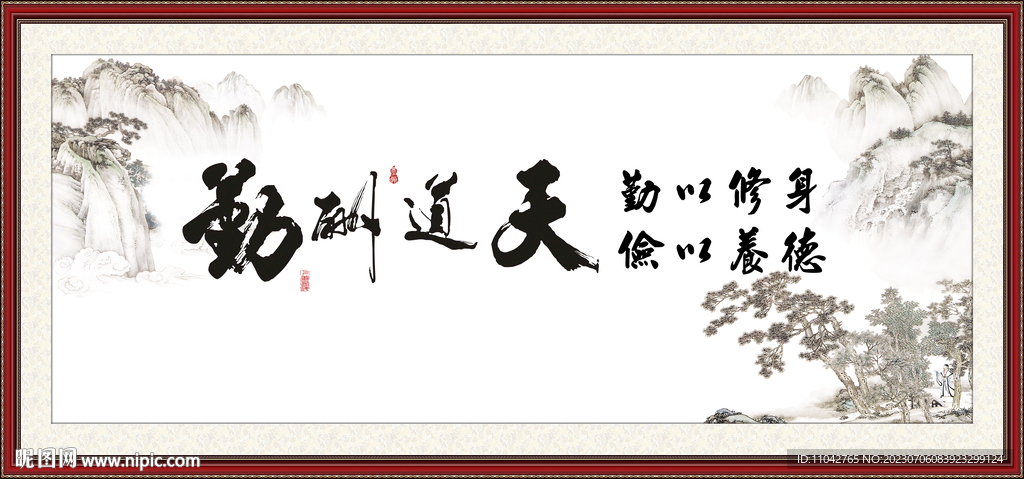 天道酬勤
勤以修身
儉以養德
昵图网 www.nipic.com
ID:11042765 NO:20230706083923299124